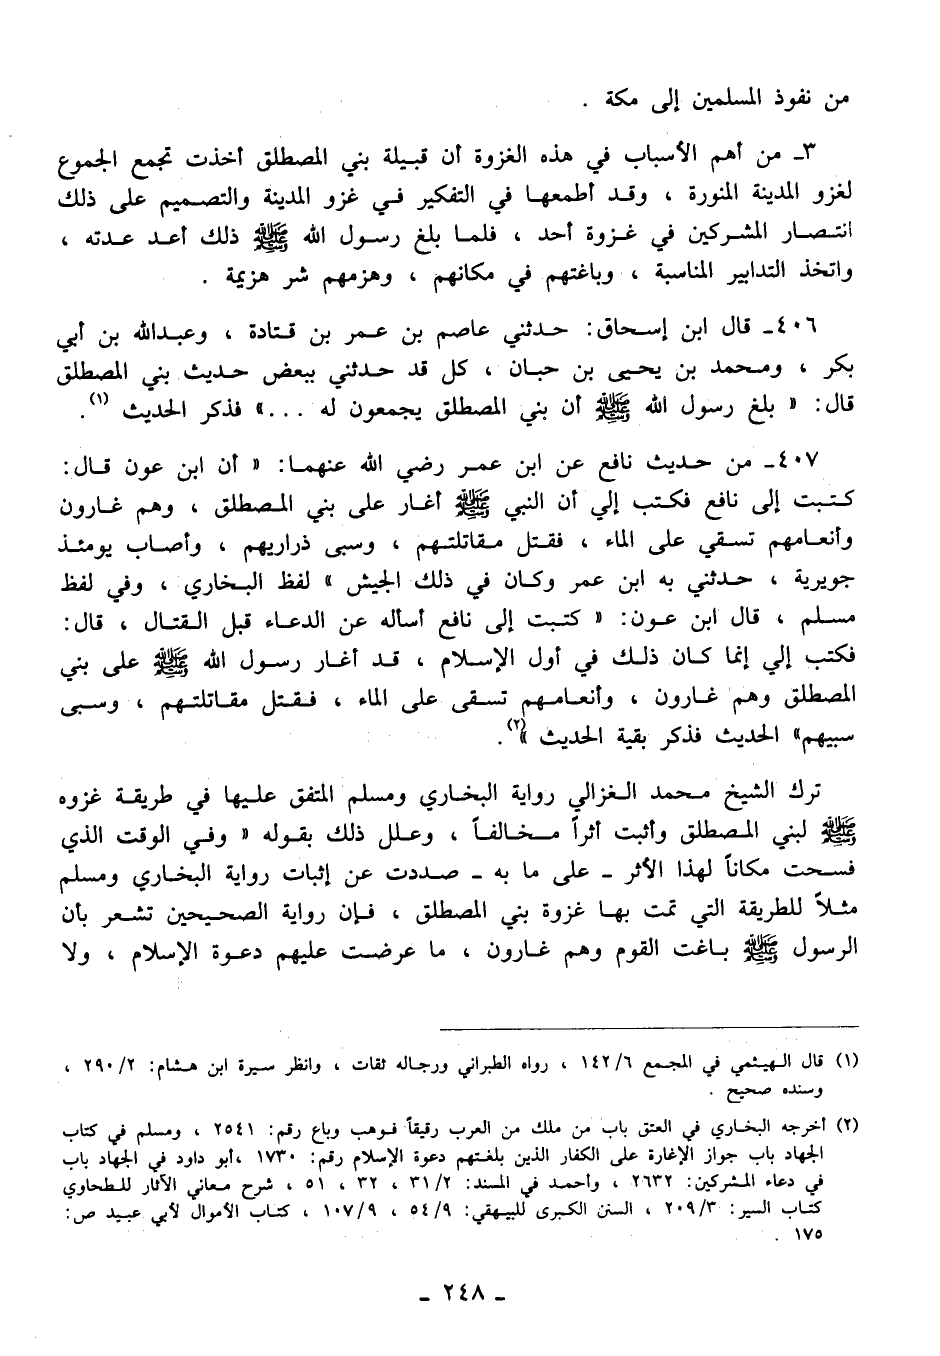 من نفوذ المسلمين إلى مكة .
٣ـ من أهم الأسباب في هذه الغزوة أن قبيلة بني المصطلق أخذت تجمع الجموع
لغزو المدينة المنورة ، وقد أطمعها في التفكير في غزو المدينة والتصميم على ذلك
انتصار المشركين في غزوة أحد ، فلما بلغ رسول الله ﷺ ذلك أعد عدته ،
واتخذ التدابير المناسبة ، وباغتهم في مكانهم ، وهزمهم شر هزيمة .
٤٠٦ـ قال ابن إسحاق: حدثني عاصم بن عمر بن قتادة ، وعبدالله بن أبي
بكر ، ومحمد بن يحيى بن حبان ، كل قد حدثني ببعض حديث بني المصطلق
قال: « بلغ رسول الله ﷺ أن بني المصطلق يجمعون له ...» فذكر الحديث (١).
٤٠٧ـ من حديث نافع عن ابن عمر رضي الله عنهما: « أن ابن عون قال:
كتبت إلى نافع فكتب إلي أن النبي ﷺ أغار على بني المصطلق ، وهم غارون
وأنعامهم تسقي على الماء ، فقتل مقاتلتهم ، وسبى ذراريهم ، وأصاب يومئذ
جويرية ، حدثني به ابن عمر وكان في ذلك الجيش » لفظ البخاري ، وفي لفظ
مسلم ، قال ابن عون: « كتبت إلى نافع أسأله عن الدعاء قبل القتال ، قال:
فكتب إلي إنما كان ذلك في أول الإسلام ، قد أغار رسول الله ﷺ على بني
المصطلق وهم غارون ، وأنعامهم تسقى على الماء ، فقتل مقاتلتهم ، وسبى
سبيهم» الحديث فذكر بقية الحديث »(٢).
ترك الشيخ محمد الغزالي رواية البخاري ومسلم المتفق عليها في طريقة غزوه
ﷺ لبني المصطلق وأثبت أثراً مخالفاً ، وعلل ذلك بقوله « وفي الوقت الذي
فسحت مكاناً لهذا الأثر ـ على ما به ـ صددت عن إثبات رواية البخاري ومسلم
مثلاً للطريقة التي تمت بها غزوة بني المصطلق ، فإن رواية الصحيحين تشعر بأن
الرسول ﷺ باغت القوم وهم غارون ، ما عرضت عليهم دعوة الإسلام ، ولا
(١) قال الهيثمي في المجمع ١٤٢/٦ ، رواه الطبراني ورجاله ثقات ، وانظر سيرة ابن هشام: ٢٩٠/٢ ،
وسنده صحيح .
(٢) أخرجه البخاري في العتق باب من ملك من العرب رقيقاً فوهب وباع رقم: ٢٥٤١ ، ومسلم في كتاب
الجهاد باب جواز الإغارة على الكفار الذين بلغتهم دعوة الإسلام رقم: ١٧٣٠ ،أبو داود في الجهاد باب
في دعاء المشركين: ٢٦٣٢ ، وأحمد في المسند: ٣١/٢ ، ٣٢ ، ٥١ ، شرح معاني الآثار للطحاوي
كتاب السير: ٢٠٩/٣ ، السنن الكبرى للبيهقي: ٥٤/٩ ، ١٠٧/٩ ، كتاب الأموال لأبي عبيد ص:
١٧٥ .
ـ ٢٤٨ ـ